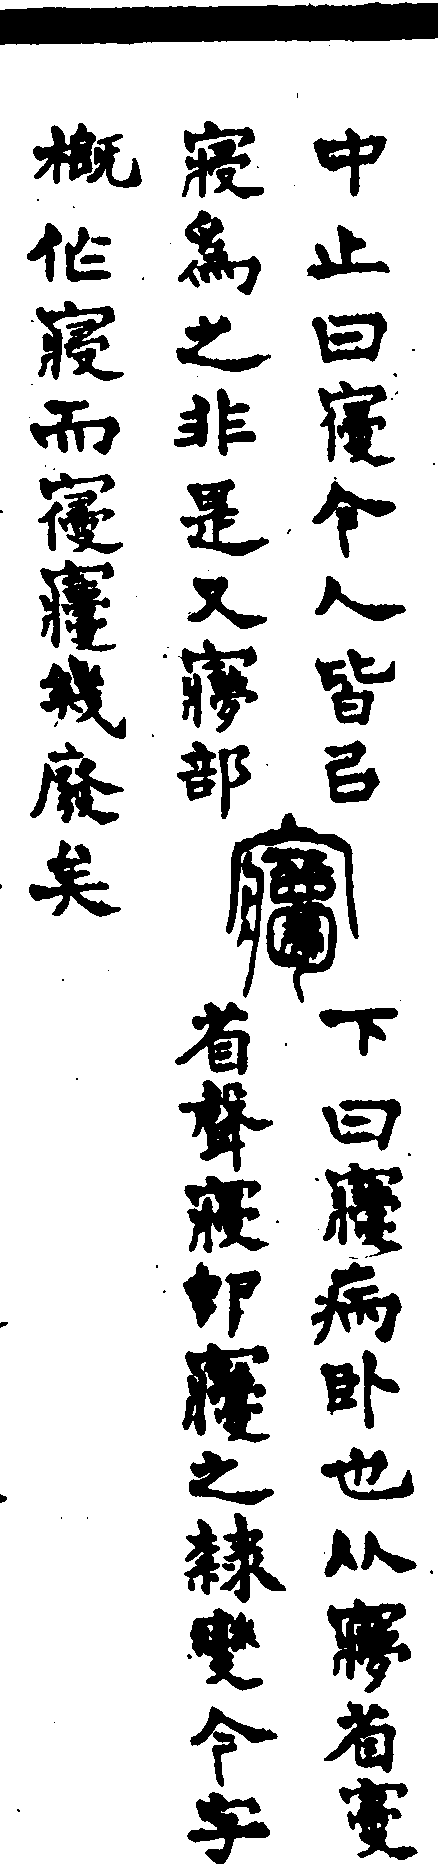 中止曰𡩠今人皆㠯
寢爲之非是又㝱部
𡪢
下曰𡪢病臥也从㝱省𡩠
省聲寢卽𡪢之隸變今字
概作寢而𡩠𡪢幾廢矣